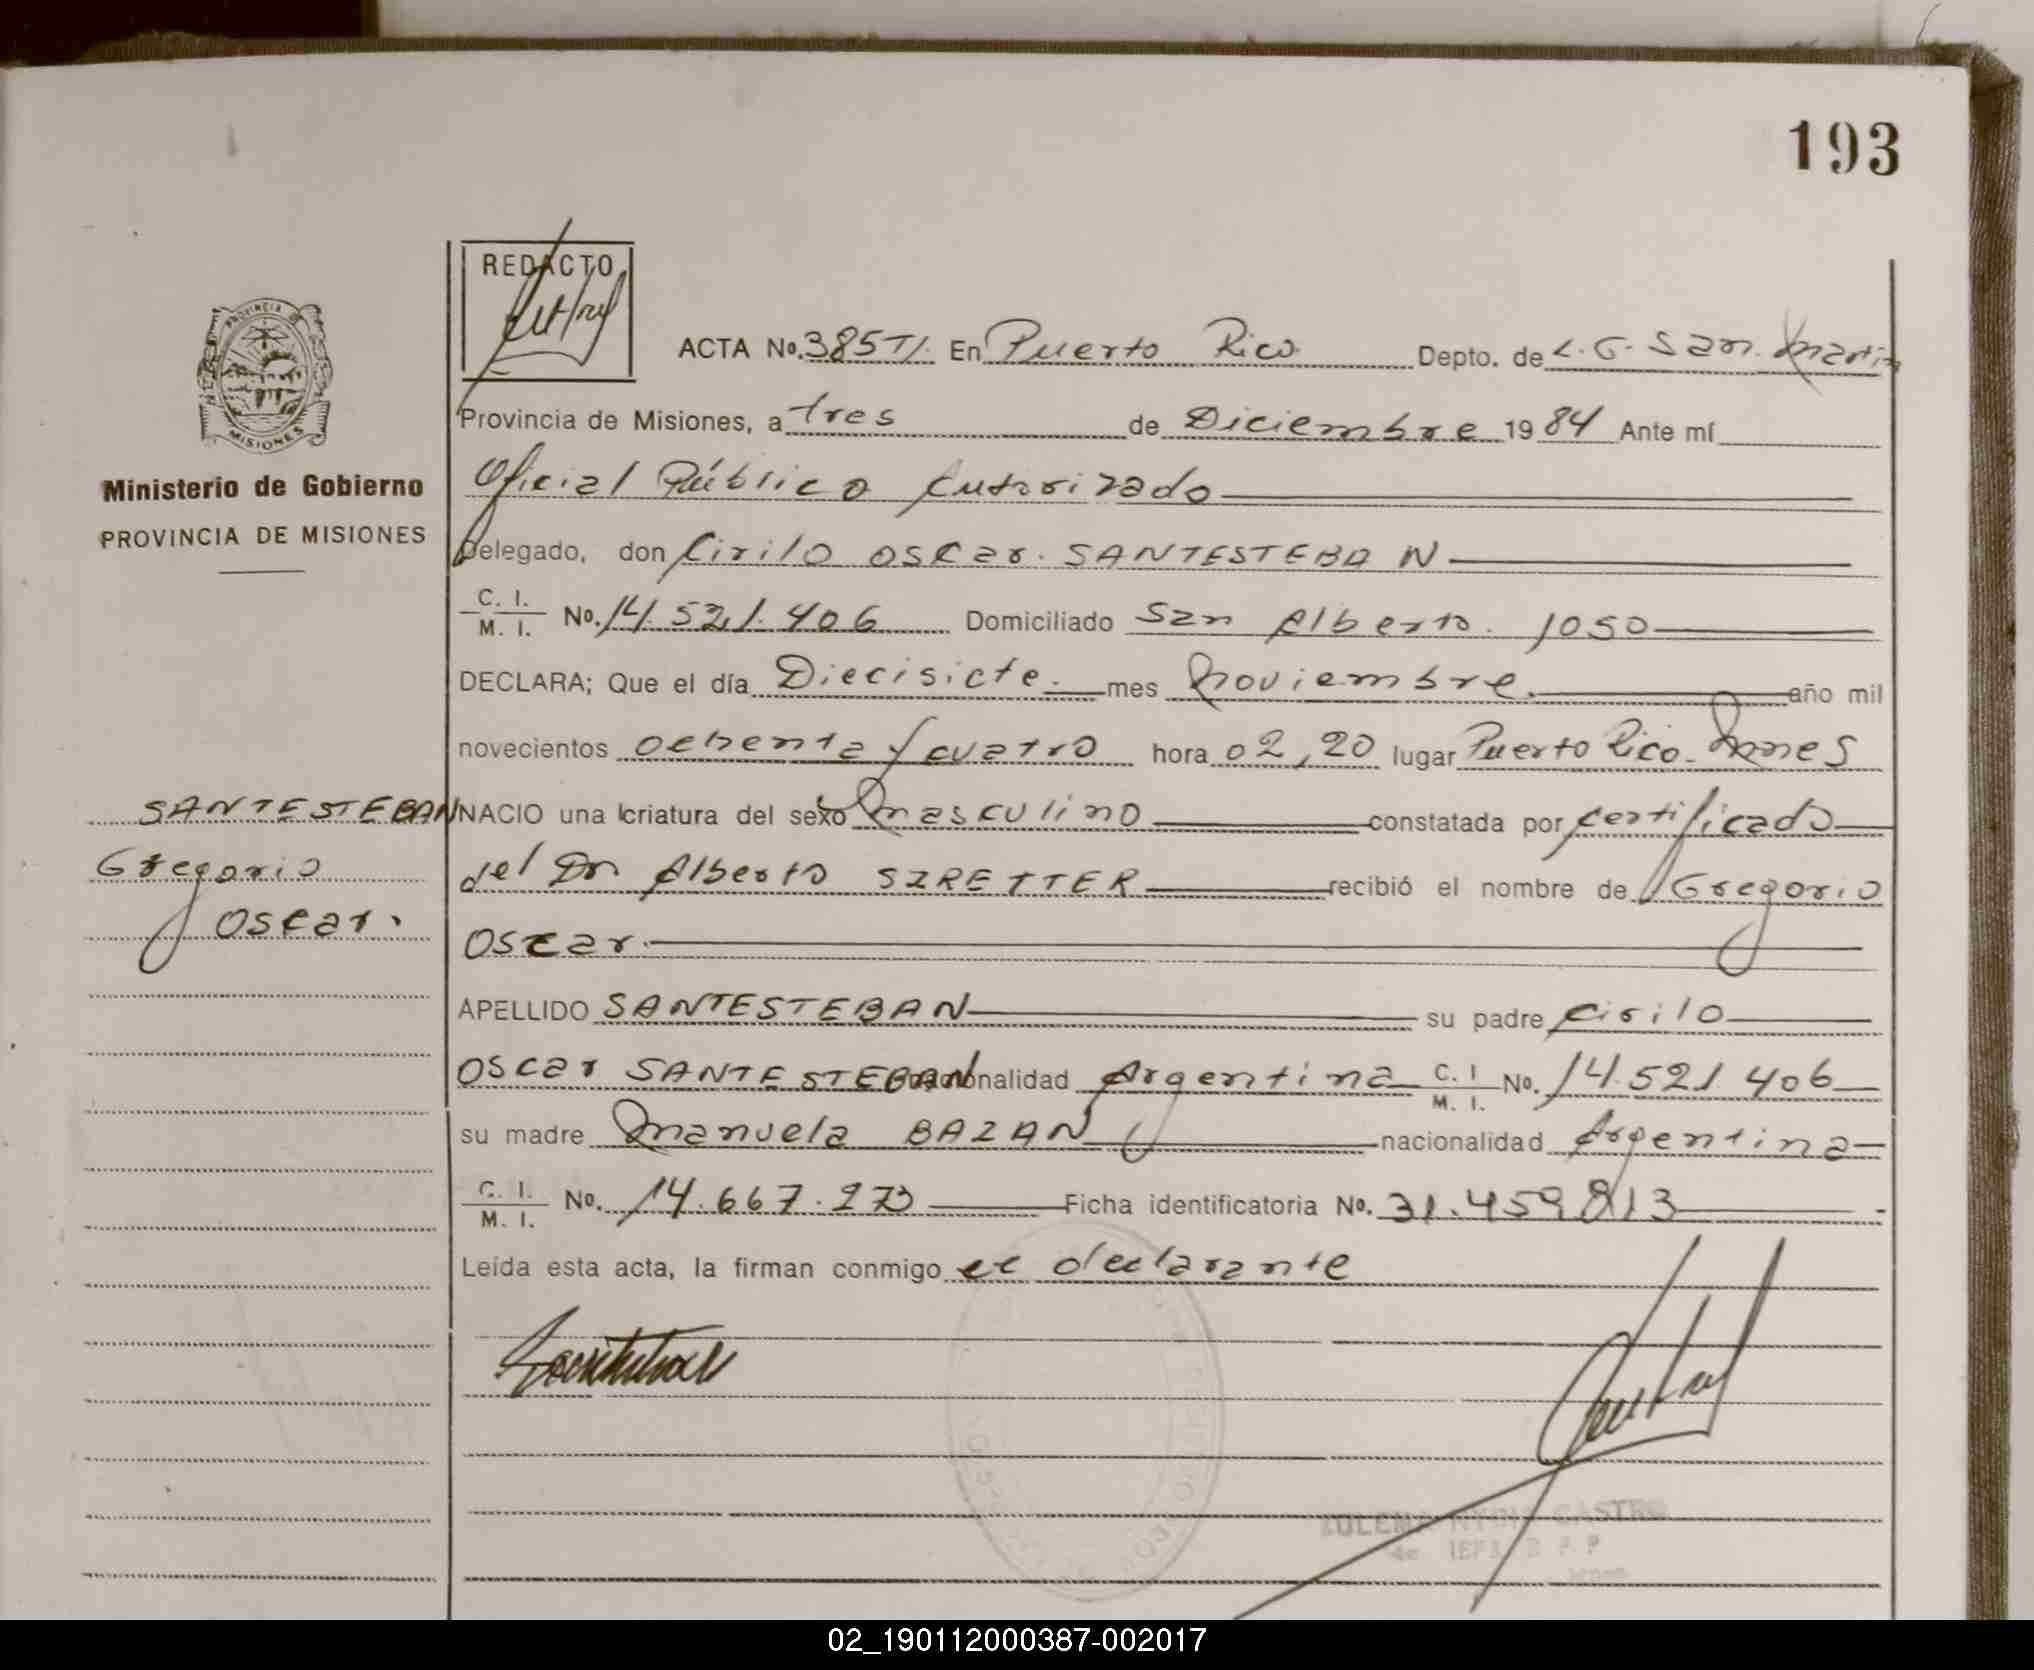 193
REDACTO
ACTA No. 385 TI. En Puerto Rico Depto. de L. G. San Martin
PROVINCIA DE
MISIONES
Provincia de Misiones, a tres de Diciembre 1984 Ante mí
Ministerio de Gobierno
PROVINCIA DE MISIONES
Oficial Público Autorizado
Delegado, don Cirilo Oscar. SANTESTEBAN
C. I. M. I. No. 14.521.406 Domiciliado San Alberto. 1050
DECLARA; Que el día Diecisiete. mes Noviembre. año mil
novecientos ochenta y cuatro hora 02,20 lugar Puerto Rico - Mnes
NACIO una criatura del sexo masculino constatada por certificado
del Dr Alberto SZRETTER recibió el nombre de Gregorio
Oscar.
SANTESTEBAN
Gregorio
Oscar.
APELLIDO SANTESTEBAN su padre Cirilo
Oscar SANTESTEBAN nacionalidad Argentina C. I M. I. No. 14.521 406
su madre Manuela BAZAN nacionalidad Argentina
C. I. M. I. No. 14.667.273 Ficha identificatoria No. 31.459813
Leída esta acta, la firman conmigo el declarante
CASTRO
02_190112000387-002017